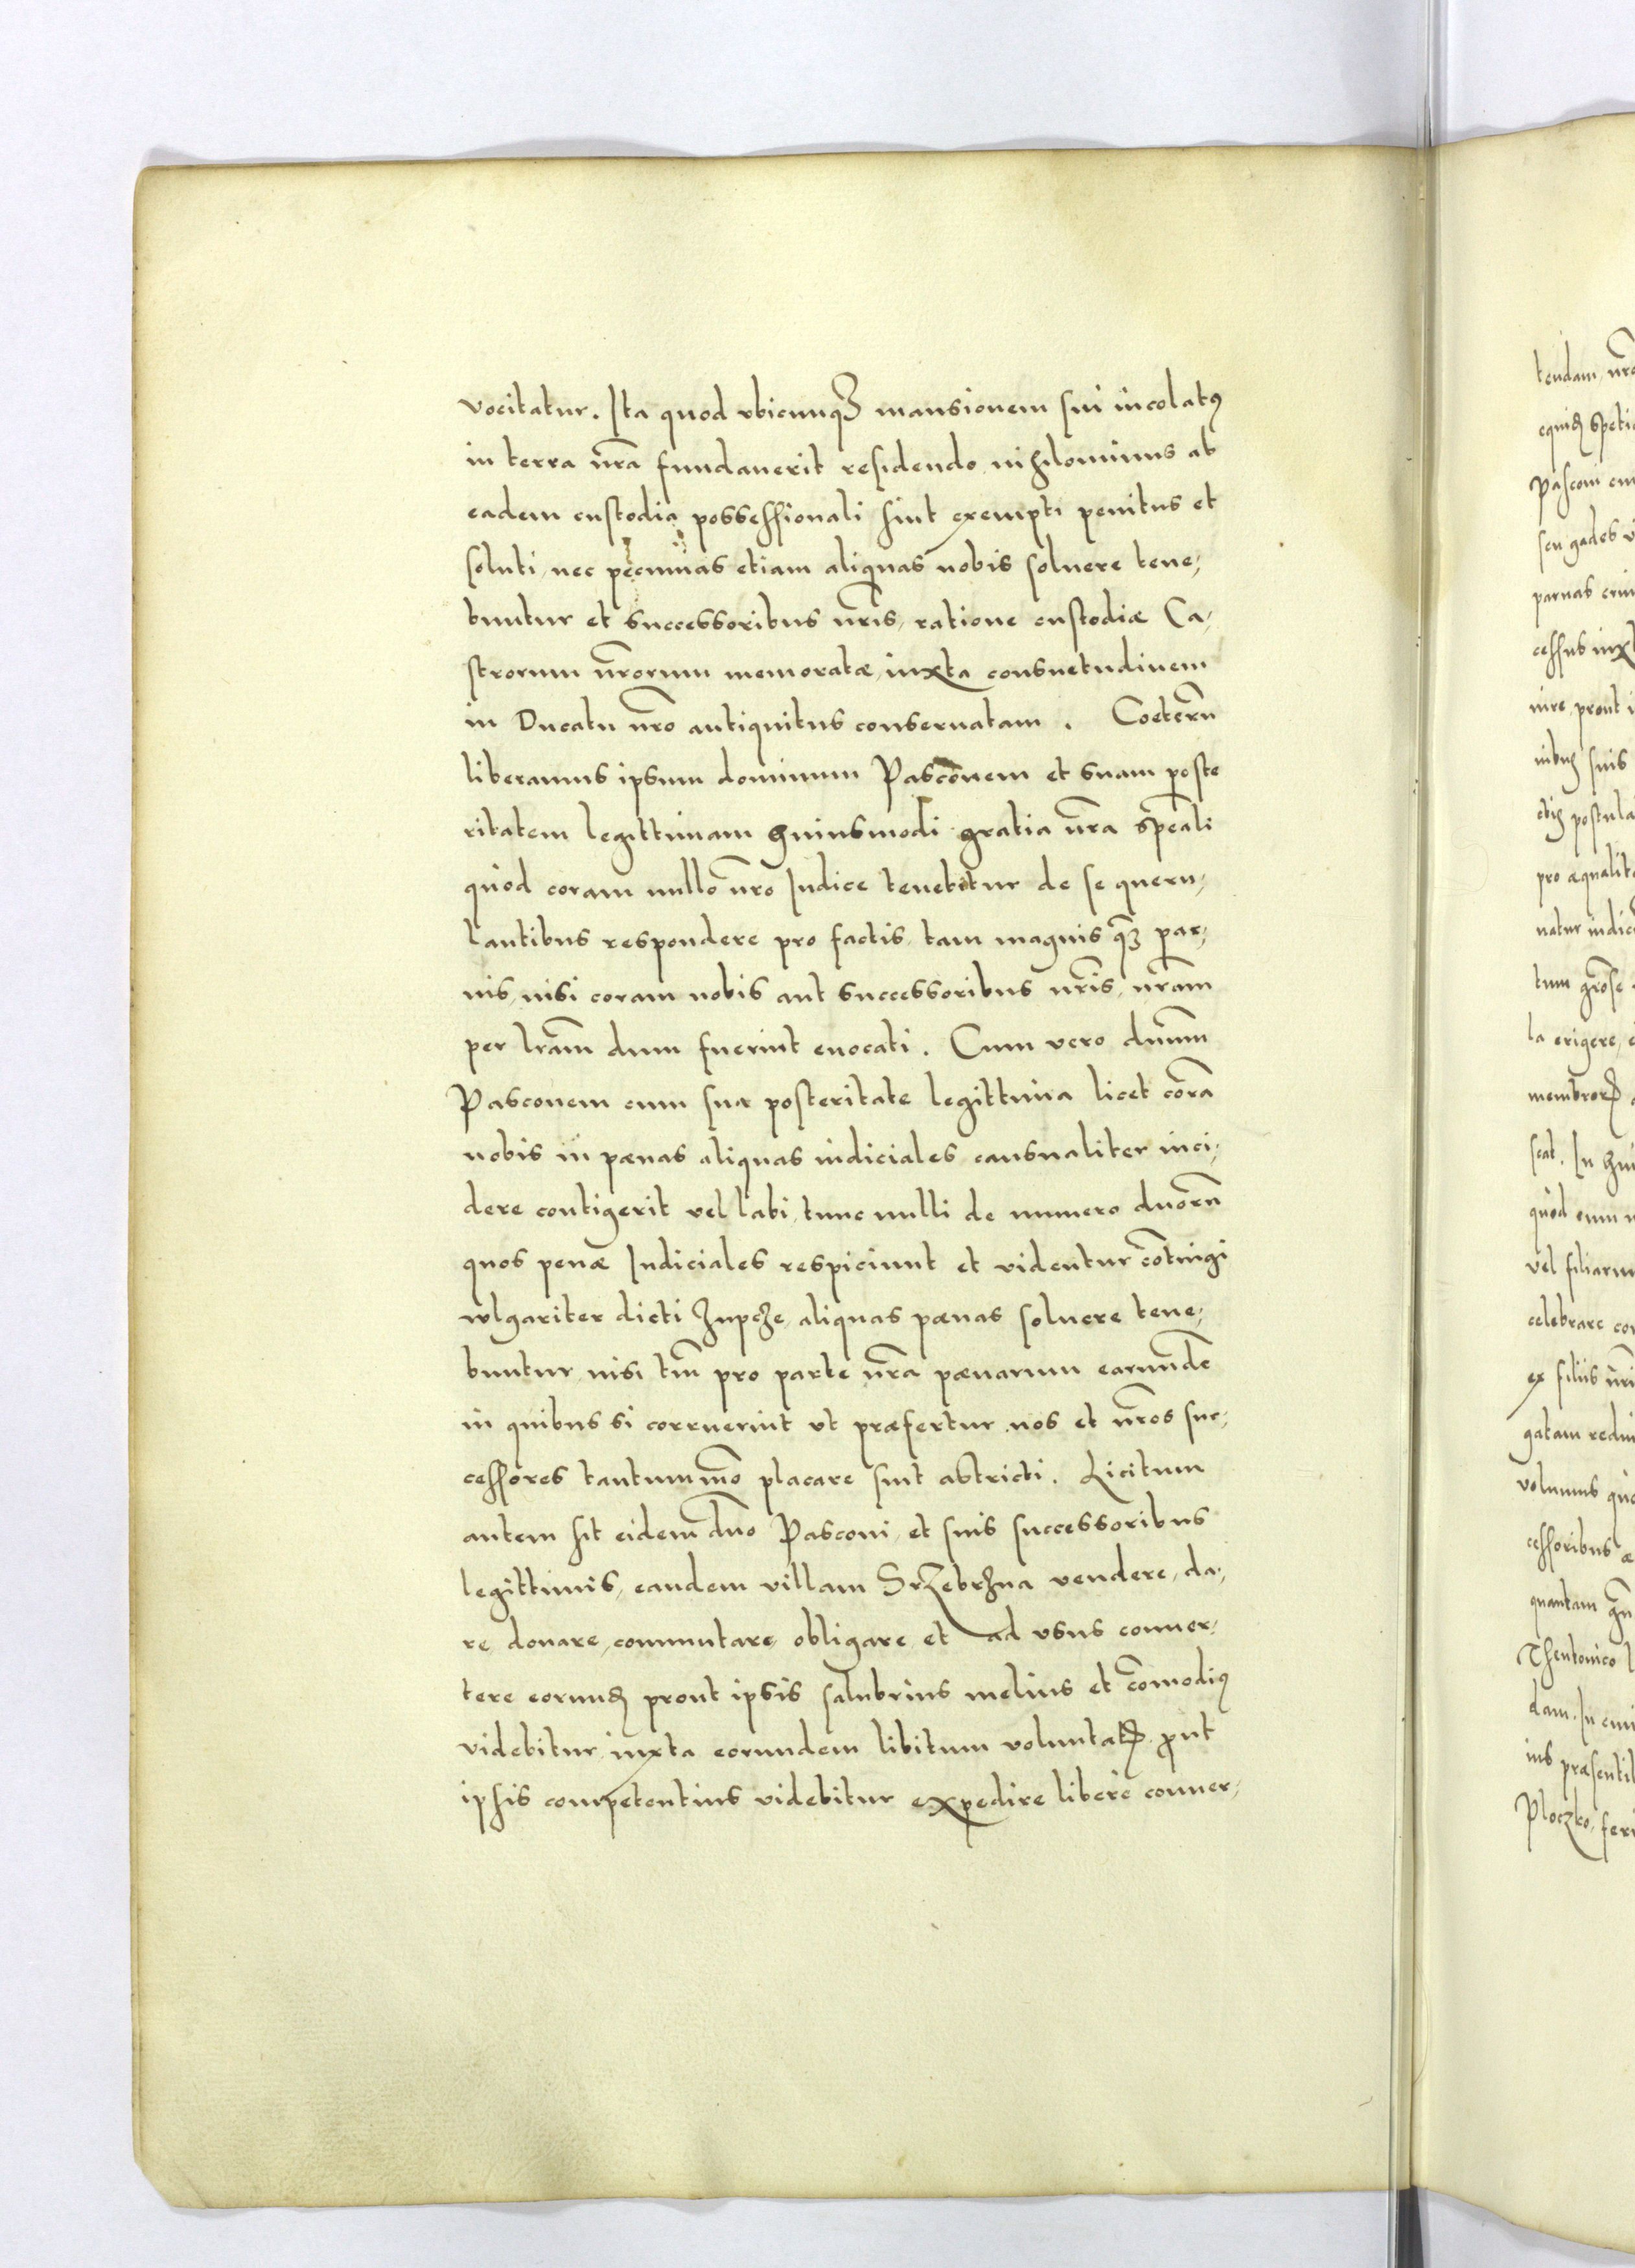 vocitatur. Ita quod vbicunqꝫ mansionem sui incolatꝰ
in terra nr̃a fundauerit residendo nihilominus ab
eadem custodia possessionali sint exempti penitus et
soluti, nec pecunias etiam aliquas nobis soluere tene,
buntur et successoribus nr̃is, ratione custodiæ Ca,
strorum nr̃orum memoratæ, iuxta consuetudinem
in Ducatu nr̃o antiquitus conseruatam. Coeterũ
liberamus ipsum dominum Pasconem et suam poste
ritatem legittimam huiusmodi gratia nr̃a spẽali
quòd coram nullo nr̃o Iudice tenebitur de se queru,
lantibus respondere pro factis, tam magnis q̃ꝫ par,
uis, nisi coram nobis aut successoribus nr̃is, nr̃am
per lr̃am dum fuerint euocati. Cum vero dñum
Pasconem cum sua posteritate legittima licet corã
nobis in pænas aliquas iudiciales causualiter inci,
dere contigerit vel labi, tunc nulli de numero duorũ
quos penæ Iudiciales respiciunt et videntur cõtingi
wlgariter dicti Zupcze, aliquas pænas soluere tene,
buntur, nisi tm̃ pro parte nr̃a pænarum earundẽ
in quibus si corruerint vt præfertur nos et nr̃os suc,
cessores tantummõ placare sint abtricti. Licitum
autem sit eidem dño Pasconi et suis successoribus
legittimis, eandem villam SrZebrzna vendere, da,
re, donare, commutare, obligare et ad vsus conuer,
tere eorundꝫ prout ipsis salubrius melius et cõmodiꝰ
videbitur, iuxta eorundem libitum voluntatꝭ. prout
ipsis competentius videbitur expedire liberè conuer,
tendam, nr̃a
Pasconi
seu gades
paruas
cessus iuxt
nire, prout
suis
postula
pro æqualit
natur
tum
la erigere,
scat. In
quòd cum
vel filiarum
celebrare con
ex filiis nr̃i
gatam
volumus
cessoribus
quantam
Theutonico
dam. In
ius præsenti
Ploczko,